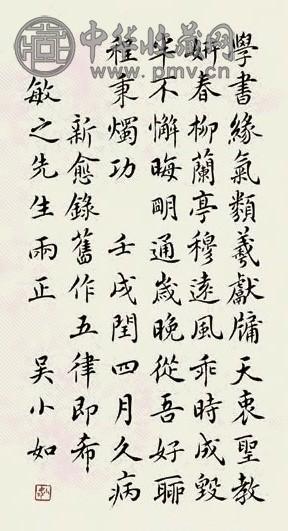 中华收藏网
www.pmv.cn
學書緣氣類羲獻牖天衷聖教
妍春柳蘭亭穆遠風乖時成毀
半不懈晦明通歲晚從吾好聊
程秉燭功 壬戌閏四月久病
新愈錄舊作五律即希
敏之先生兩正 吴小如